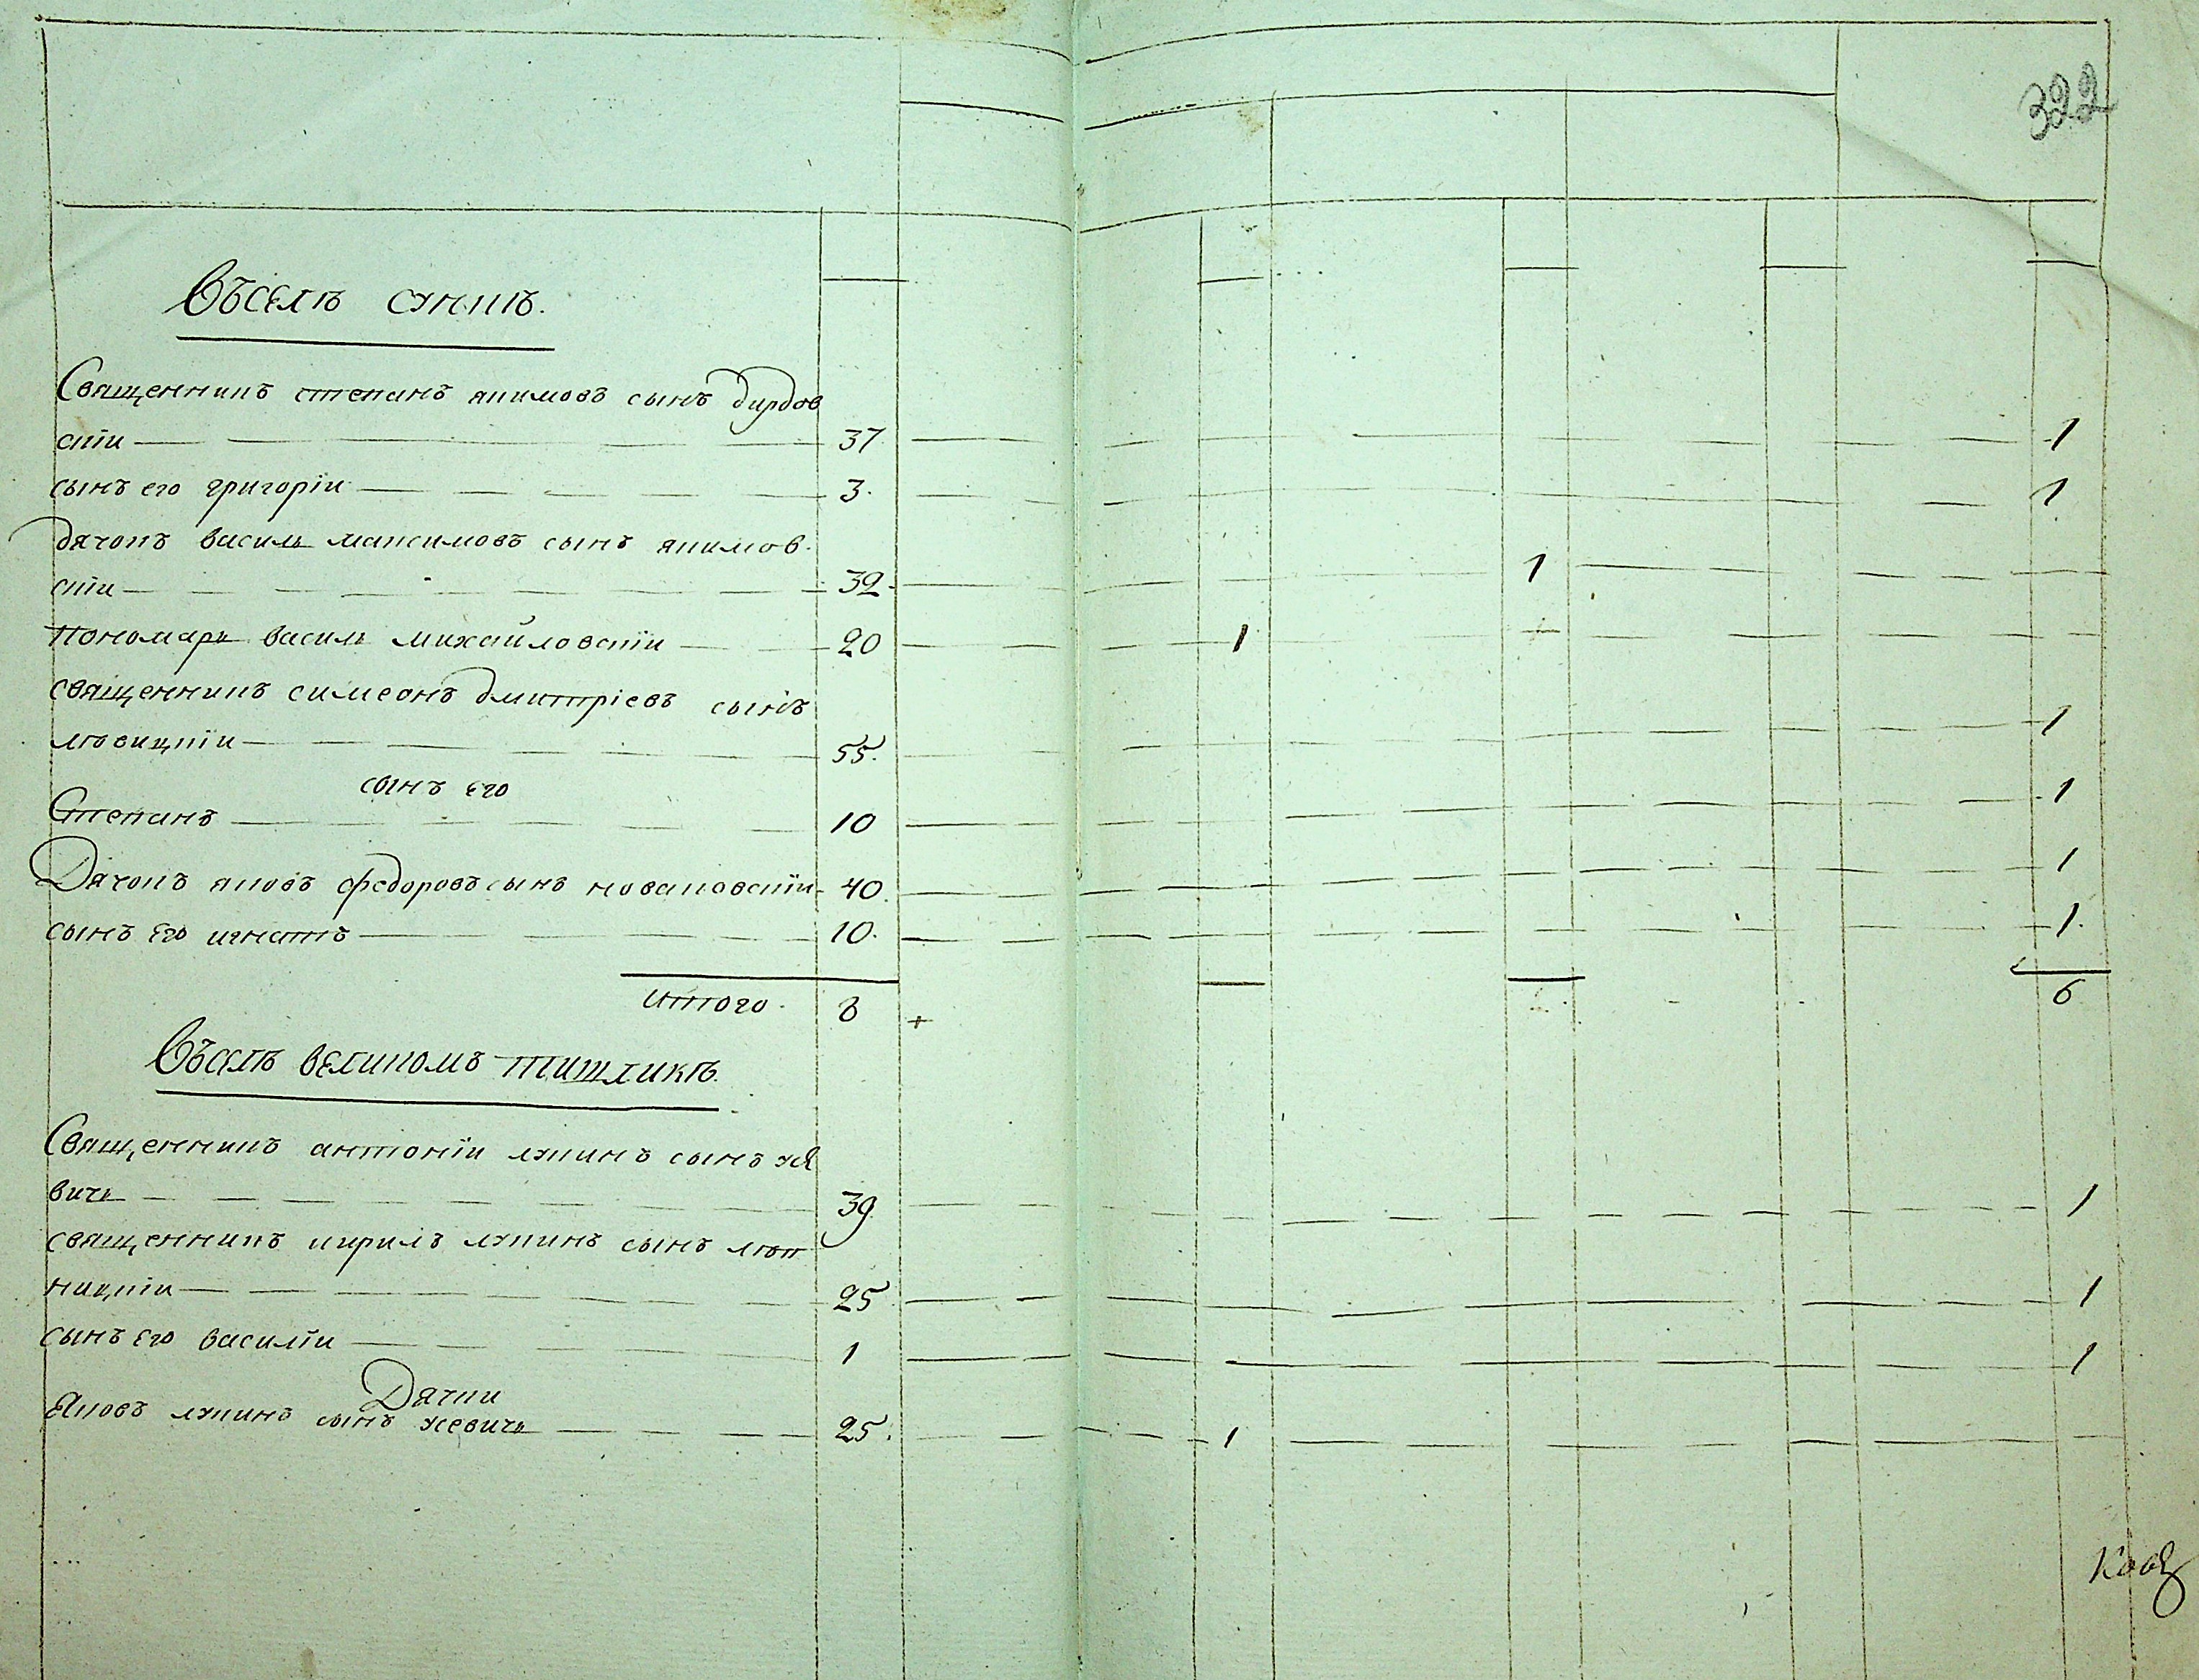 322
Въ селѣ сункѣ.
Священникъ степанъ якимовъ сынъ дирдов
скїи 37 1
сынъ его григорїи 3. 1
дячокъ василь максимовъ сынъ якимов-
скїи 32 1
Пономарь василь михайловскїи 20 1
священникъ симеонъ дмитрїевъ сынъ
ловицкїи 55. 1
сынъ его
Степанъ 10 1
Дячокъ яковъ федоровъ сынъ новаковскїи 40. 1
сынъ его игнатъ 10. 1.
итого. 8 + 6
Въ селѣ великомъ ташликѣ.
Священникъ антонїи лукинъ сынъ
вичь 39 1
священникъ кирилъ лукинъ сынъ
ницкїи 25 1
сынъ его василїи 1 1
Дячки
Яковъ лукинъ сынъ 25. 1